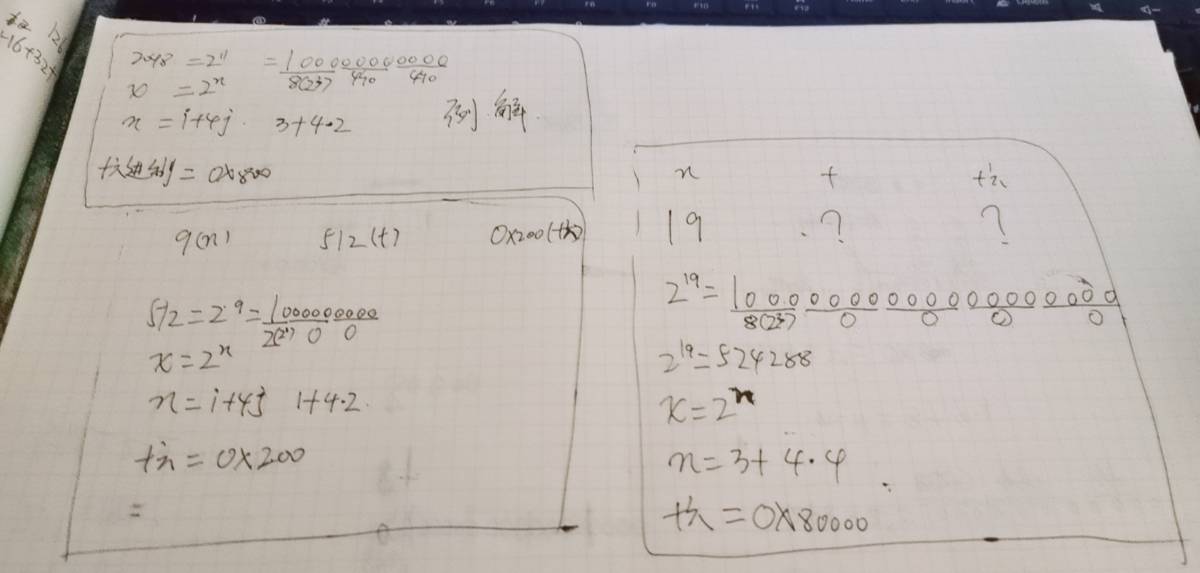 2048 = 2^11 = 100000000000
8(2^3) 4个0 4个0
x = 2^n
n = i+4j. 3+4·2 例.解.
十六进制 = 0x800
9(n) 512(十) 0x200(十六)
512 = 2^9 = 1000000000
2(2^1) 0 0
x = 2^n
n = i+4j 1+4·2.
十六 = 0x200
=
n 十 十六
19 .? ?
2^19 = 1 0 0 0 0 0 0 0 0 0 0 0 0 0 0 0 0 0 0 0
8(2^3) 0 0 0 0
2^19 = 524288
x = 2^n
n = 3+ 4·4
十六 = 0x80000